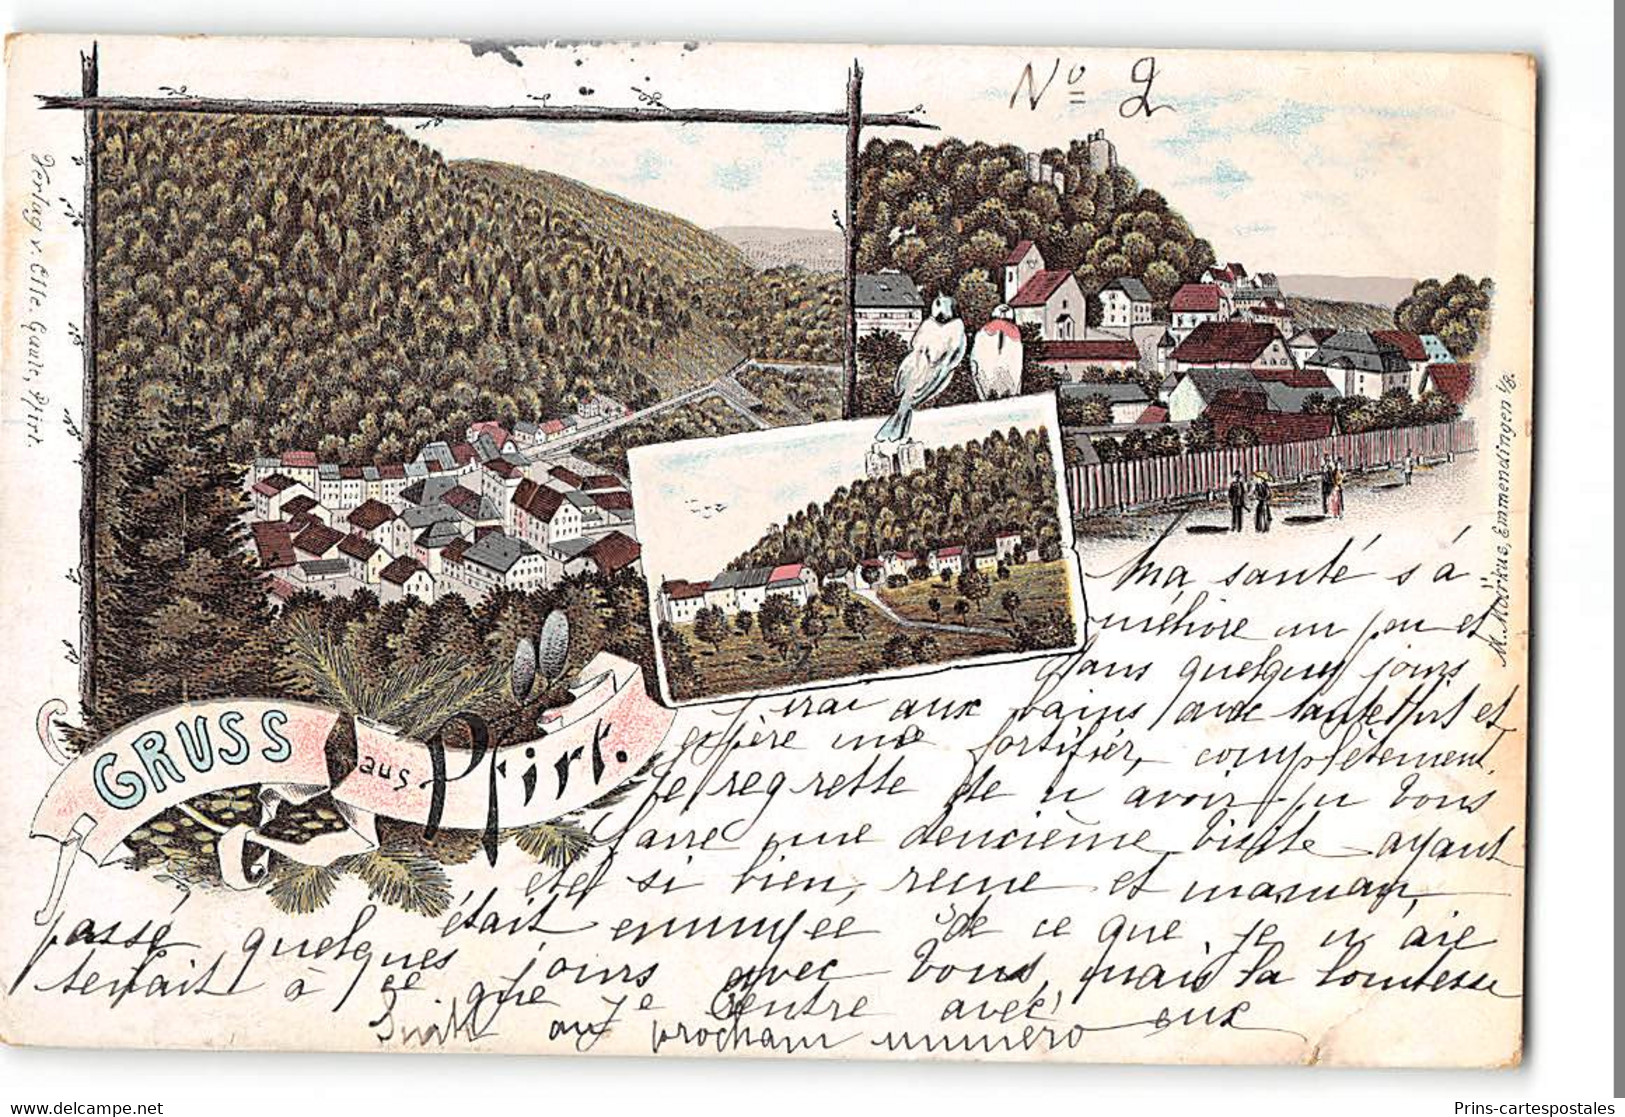 No 2
Verlag v. Elle. Gault, Pfirt.
M. Märkus, Emmendingen i/B.
GRUSS aus Pfirt.
Ma santé s'a
méliore un peu et
dans quelques jours
j'irai aux bains avec et
espère me fortifier, complètement.
Je regrette de n avoir pu vous
faire une deuxième visite ayant
été si bien, reçue et maman,
était ennuyée de ce que je n aie
passé quelques jours avec vous, mais la Comtesse
tenait à ce que je rentre avec eux
Suite au prochain numéro
Prins-cartespostales
www.delcampe.net